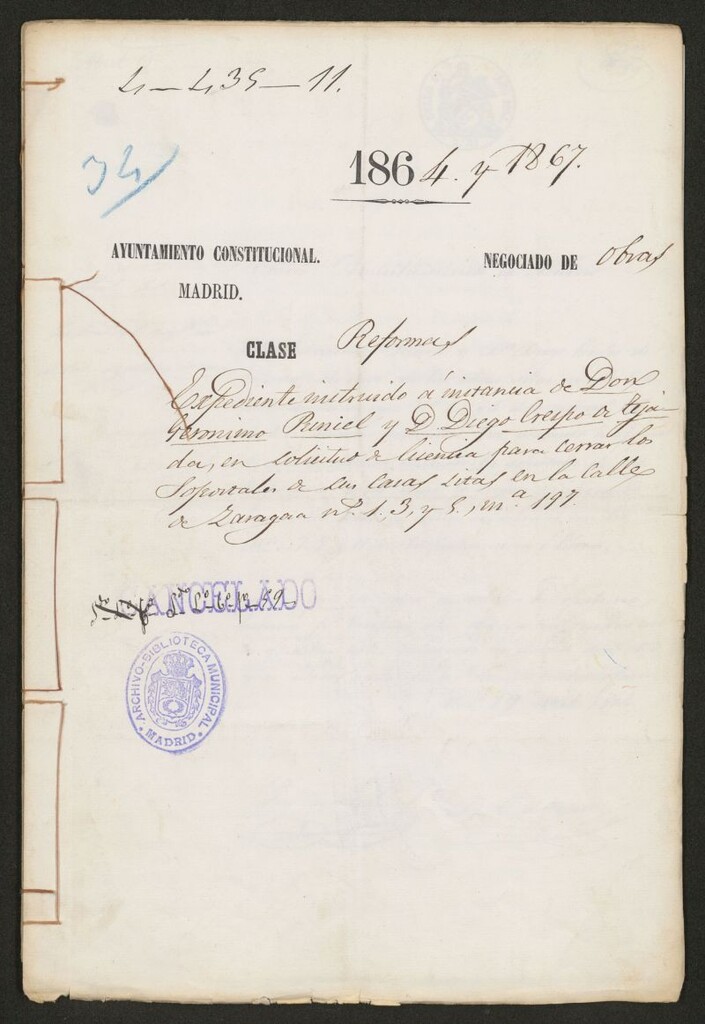 4-435-11.
34
1864. y 1867.
AYUNTAMIENTO CONSTITUCIONAL.
MADRID.
NEGOCIADO DE Obras
CLASE Reformas
Expediente instruido á instancia de Don
Geronimo Riniel y D. Diego Crespo de teja-
da, en solicitud de licencia para cerrar los
Soportales de sus Casas sitas en la Calle
de Zaragoza nº. 1. 3, y 5, mª 197.
CANCELADO
ARCHIVO-BIBLIOTECA MUNICIPAL
MADRID.